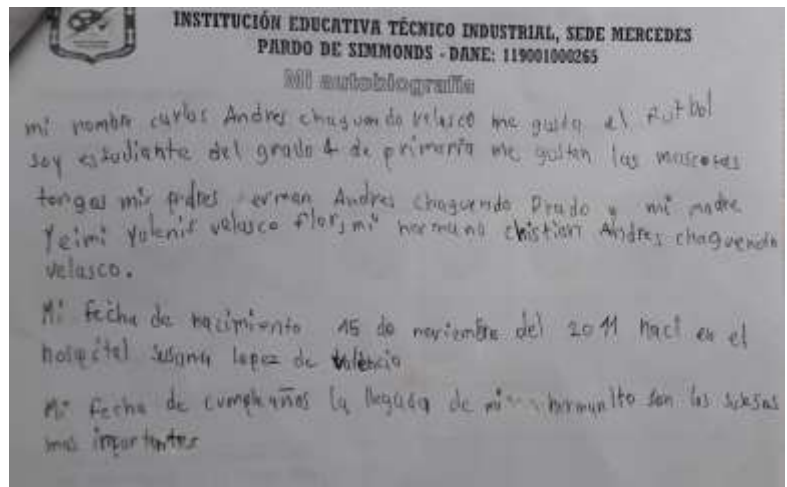 INSTITUCIÓN EDUCATIVA TÉCNICO INDUSTRIAL, SEDE MERCEDES
PARDO DE SIMMONDS - DANE: 119001000265
Mi autobiografia
mi nombre carlos Andres chaguendo velasco me gusta el Futbol
soy estudiante del grado 4 de primaria me gustan las mascotas
tengas mis padres erman Andres chaguendo Prado y mi madre
Yeimi Yulenis velasco flor, mi hermano chistian Andres chaguendo
velasco.
Mi fecha de nacimiento 15 de noviembre del 2011 naci en el
hospital susana lopez de valencia
Mi fecha de cumpleaños la llegada de mi hermanito son los
mas importantes